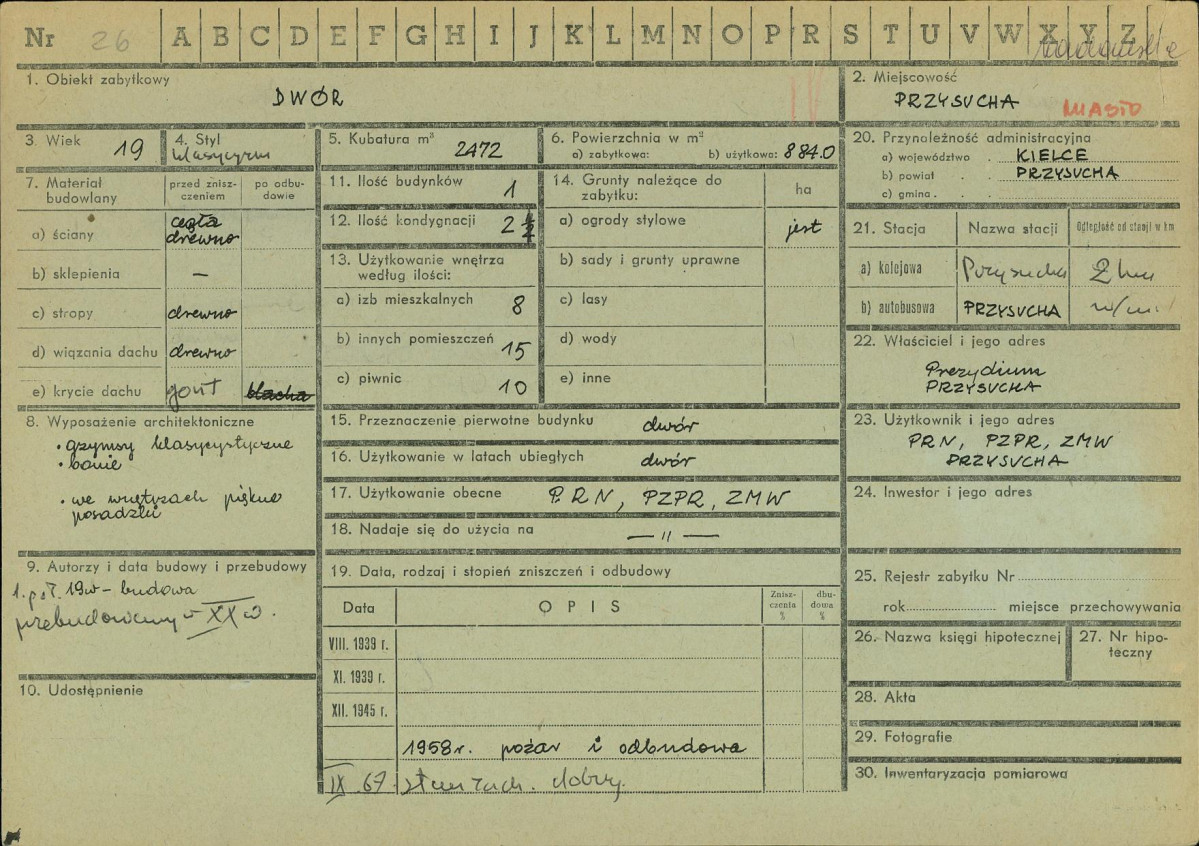 Nr 26 A B C D E F G H I J K L M N O P R S T U V W X Y Z
1. Obiekt zabytkowy
DWÓR
IV
2. Miejscowość
PRZYSUCHA
MIASTO
3. Wiek 19
4. Styl
klasycyzm
5. Kubatura m³ 2472
6. Powierzchnia w m²
a) zabytkowa: b) użytkowa: 884.0
20. Przynależność administracyjna
a) województwo . KIELCE
b) powiat . . PRZYSUCHA
c) gmina . . .
7. Materiał budowlany
przed znisz-
czeniem
po odbu-
dowie
a) ściany cegła
drewno
b) sklepienia —
c) stropy drewno
d) wiązania dachu drewno
e) krycie dachu gont blacha
11. Ilość budynków 1
12. Ilość kondygnacji 2
13. Użytkowanie wnętrza
według ilości:
a) izb mieszkalnych 8
b) innych pomieszczeń 15
c) piwnic 10
14. Grunty należące do
zabytku:
ha
a) ogrody stylowe jest
b) sady i grunty uprawne
c) lasy
d) wody
e) inne
21. Stacja Nazwa stacji Odległość od stacji w km
a) kolejowa Przysucha 2 km
b) autobusowa PRZYSUCHA w/m.
22. Właściciel i jego adres
Prezydium
PRZYSUCHA
8. Wyposażenie architektoniczne
• gzymsy klasycystyczne
• bonie
• we wnętrzach piękne
posadzki
15. Przeznaczenie pierwotne budynku dwór
16. Użytkowanie w latach ubiegłych dwór
17. Użytkowanie obecne P.R N, PZPR, ZMW
18. Nadaje się do użycia na — 〃 —
23. Użytkownik i jego adres
PRN, PZPR, ZMW
PRZYSUCHA
24. Inwestor i jego adres
9. Autorzy i data budowy i przebudowy
1. poł. 19w – budowa
przebudowany w XX w.
10. Udostępnienie
19. Data, rodzaj i stopień zniszczeń i odbudowy
Data OPIS Znisz-
czenia
% dbu-
dowa
%
VIII. 1939 r.
XI. 1939 r.
XII. 1945 r.
1958r. pożar i odbudowa
IX. 67. stan zach. dobry.
25. Rejestr zabytku Nr
rok miejsce przechowywania
26. Nazwa księgi hipotecznej
27. Nr hipo-
teczny
28. Akta
29. Fotografie
30. Inwentaryzacja pomiarowa